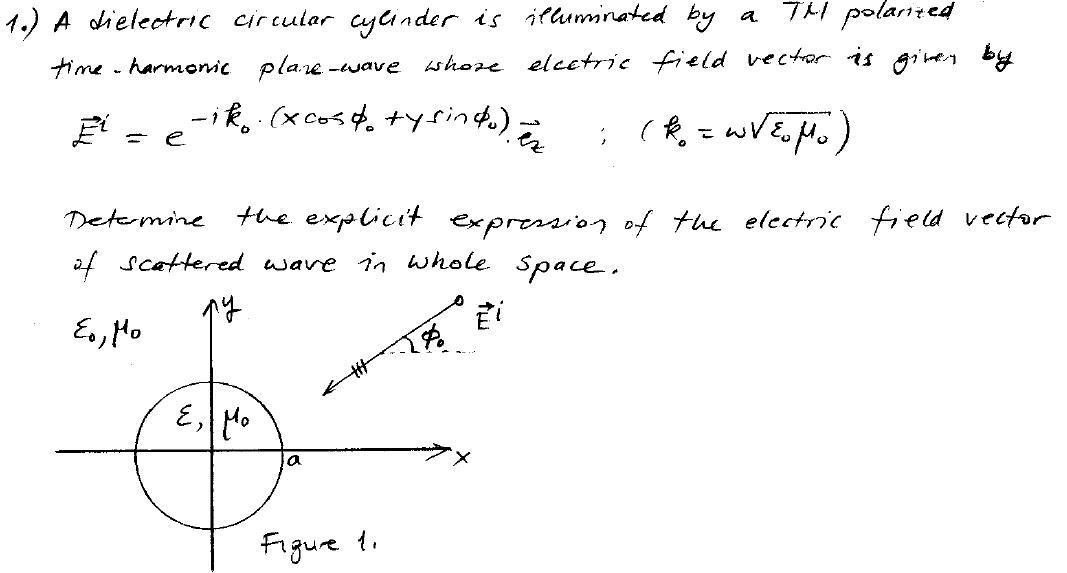 1.) A dielectric circular cylinder is illuminated by a TM polarized
time-harmonic plane-wave whose electric field vector is given by
E⃗ⁱ = e^{-ik₀·(x cosϕ₀ + y sinϕ₀)}·e⃗_z ; (k₀ = ω√(ε₀μ₀))
Determine the explicit expression of the electric field vector
of scattered wave in whole space.
y
E⃗ⁱ
ε₀, μ₀
ϕ₀
ε, μ₀
a
x
Figure 1.